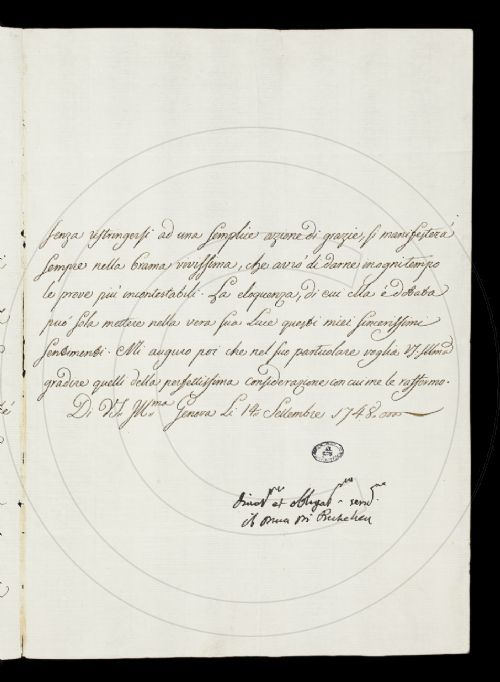 senza ristringersi ad una semplice azzione di grazie, si manifesterà
sempre nella brama vivissima, che avrò di darne in ogni tempo
le prove più incontestabili. La eloquenza, di cui ella è dottata
può sola mettere nella vera sua Luce questi miei sincerissimi
sentimenti. Mi auguro poi che nel suo particolare voglia V.S. Illma
gradire quelli della perfettissima considerazione con cui me le raffermo.
Di V.S. Illma Genova Li 14 Settembre 1748
et obligat serv
Richelieu